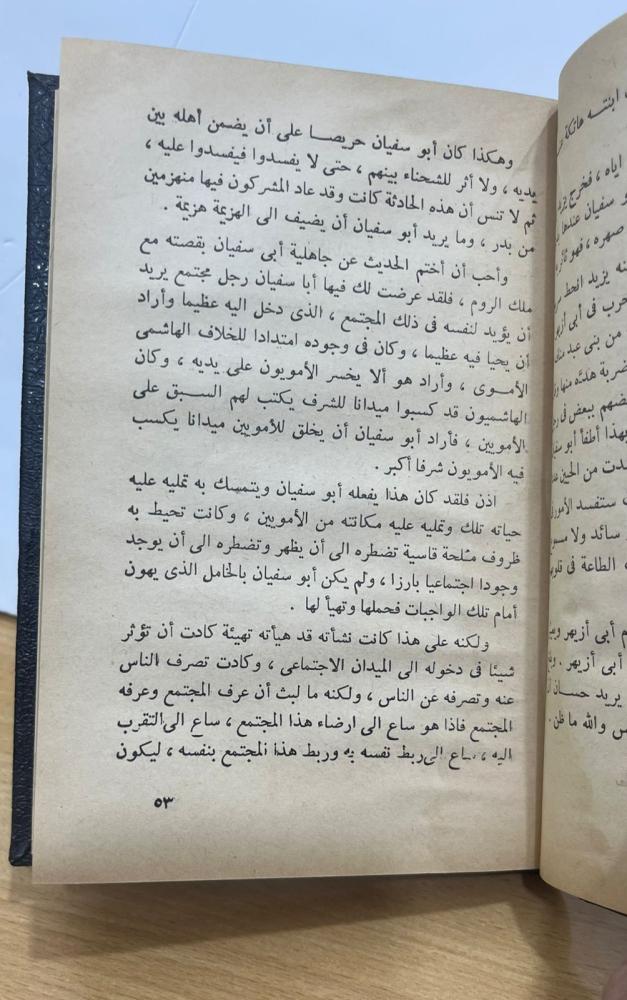 وهكذا كان أبو سفيان حريصا على أن يضمن أهله بين
يديه ، ولا أثر للشحناء بينهم ، حتى لا يفسدوا فيفسدوا عليه ،
ثم لا تنس أن هذه الحادثة كانت وقد عاد المشركون فيها منهزمين
من بدر ، وما يريد أبو سفيان أن يضيف الى الهزيمة هزيمة .
وأحب أن أختم الحديث عن جاهلية أبى سفيان بقصته مع
ملك الروم ، فلقد عرضت لك فيها أبا سفيان رجل مجتمع يريد
أن يؤيد لنفسه فى ذلك المجتمع ، الذى دخل اليه عظيما وأراد
أن يحيا فيه عظيما ، وكان فى وجوده امتدادا للخلاف الهاشمى
الأموى ، وأراد هو ألا يخسر الأمويون على يديه ، وكان
الهاشميون قد كسبوا ميدانا للشرف يكتب لهم السبق على
الأمويين ، فأراد أبو سفيان أن يخلق للأمويين ميدانا يكسب
فيه الأمويون شرفا أكبر .
اذن فلقد كان هذا يفعله أبو سفيان ويتمسك به تمليه عليه
حياته تلك وتمليه عليه مكانته من الأمويين ، وكانت تحيط به
ظروف ملحة قاسية تضطره الى أن يظهر وتضطره الى أن يوجد
وجودا اجتماعيا بارزا ، ولم يكن أبو سفيان بالخامل الذى يهون
أمام تلك الواجبات فحملها وتهيأ لها .
ولكنه على هذا كانت نشأته قد هيأته تهيئة كادت أن تؤثر
شيئا فى دخوله الى الميدان الاجتماعى ، وكادت تصرف الناس
عنه وتصرفه عن الناس ، ولكنه ما لبث أن عرف المجتمع وعرفه
المجتمع فاذا هو ساع الى ارضاء هذا المجتمع ، ساع الى التقرب
اليه ، ساع الى ربط نفسه به وربط هذا المجتمع بنفسه ، ليكون
٥٣
ابنتسه عاتكة
اياه ، فخرج يزيد
سفيان عندها
صهره ، فهو ثائر
يزيد انحط
حرب فى أبى أزيهر
من بنى عبد مناف
ضربة هدته منها
بعضهم ببعض فى
بهذا أطفأ أبو
من الحين
ستفسد الأمور
سائد ولا
الطاعة فى
أبى أزيهر
أبى أزيهر .
يريد حسان
والله ما ظن .